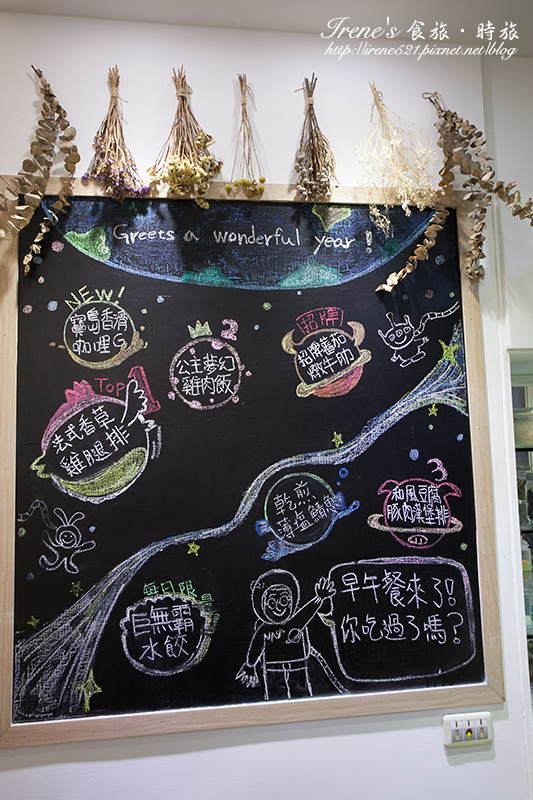 Irene's 食旅．時旅
http://irene521.pixnet.net/blog
Greets a wonderful year!
NEW!
寶島香濃
咖哩G
2
公主夢幻
雞肉飯
招牌
招牌蕃茄
燉牛肋
Top 1
法式香草
雞腿排
乾煎
薄鹽鯖魚
3
和風豆腐
豚肉漢堡排
每日限量
巨無霸
水餃
早午餐來了!
你吃過了嗎?